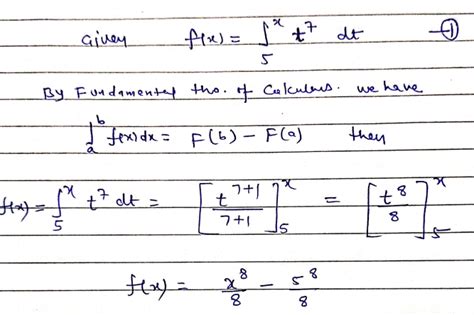 Given f(x) = ∫₅ˣ t⁷ dt —①
By Fundamental tho. of Calculus. we have
∫ₐᵇ f(x)dx = F(b) - F(a) then
f(x) = ∫₅ˣ t⁷ dt = [t⁷⁺¹/7+1]₅ˣ = [t⁸/8]₅ˣ
f(x) = x⁸/8 - 5⁸/8